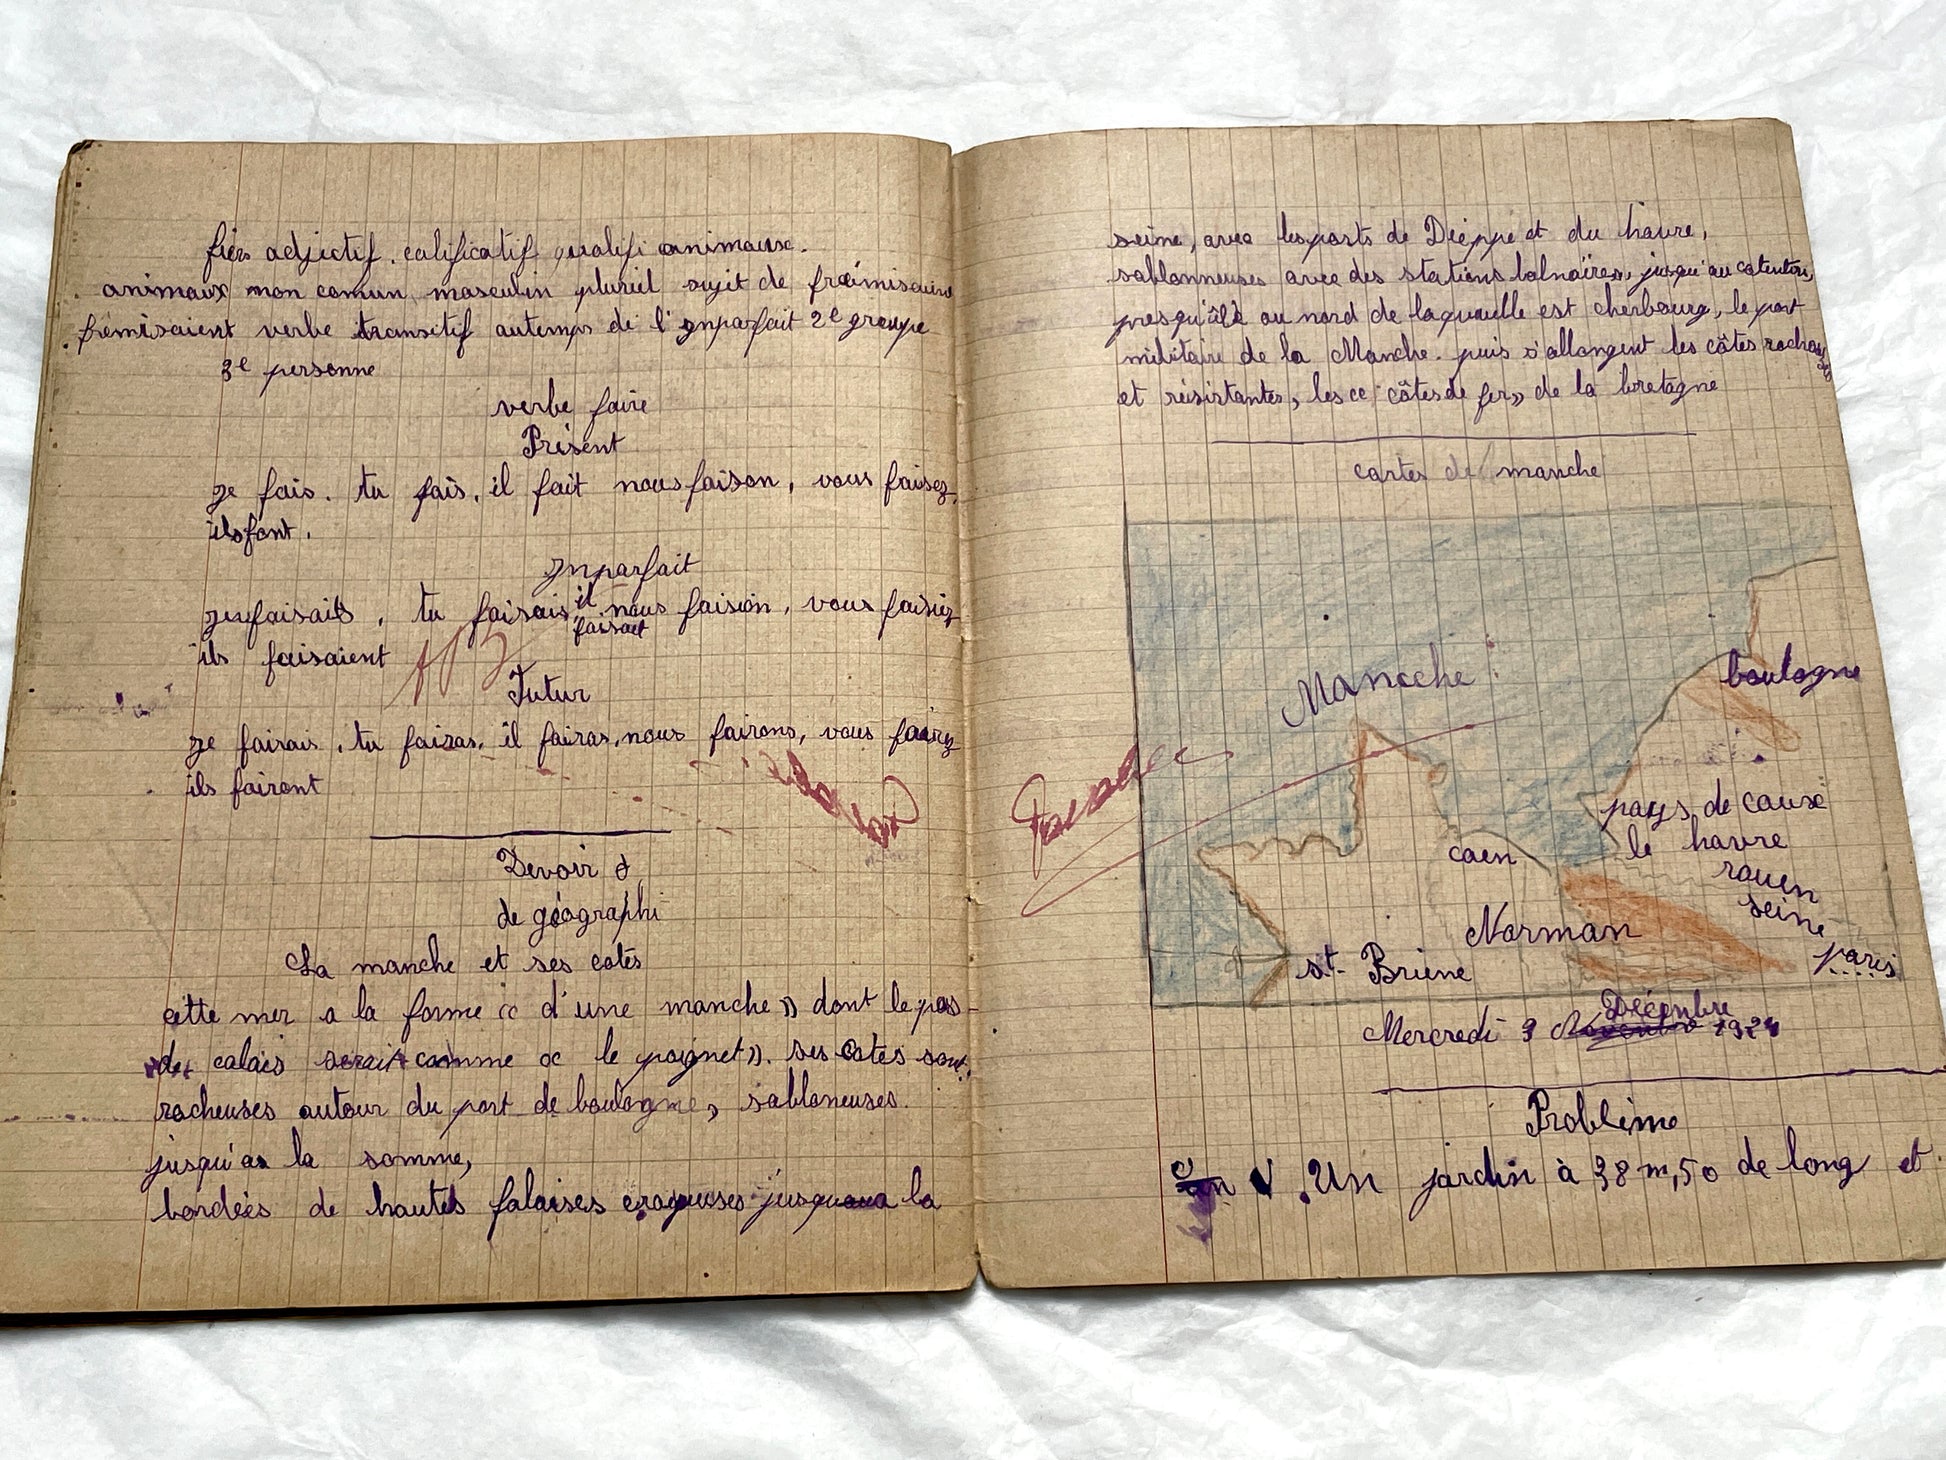 fiers adjectif. calificatif qualifi animaux.
animaux non comun masculin pluriel sujet de
frémisaient verbe transitif autemps de l'ynparfait 2e groupe
3e personne
verbe faire
Présent
je fais. tu fais. il fait nous faison, vous faisez.
ils font.
ynparfait
faisaits, tu faisais, il faisait nous faision, vous faisiez
ils faisaient
Futur
je fairais. tu fairas. il fairas, nous fairons, vous
ils fairont
Devoir d
de géographi
La manche et ses cotes
cette mer a la forme « d'une manche » dont le pas-
de calais serait comme « le poignet ». ses cotes sont
rocheuses autour du port de boulogne, sabloneuses.
jusqu'as la somme,
bordées de hautes falaises crayeuses la
seine, avec les ports de Dieppe et du havre,
sablonneuses avec des stations balnaires, jusqu'au cotentin,
presqu'île au nord de est cherbourg, le port
militaire de la Manche. puis s'allongent les côtes
et résistantes, les « côtes de fer » de la bretagne
cartes de manche
Manche
boulogne
pays de cause
le havre
caen
rouen
seine
Norman
paris
st. Briene
Mercredi 3 Novembre Décembre 1924
Problème
Un jardin à 38 m,50 de long et